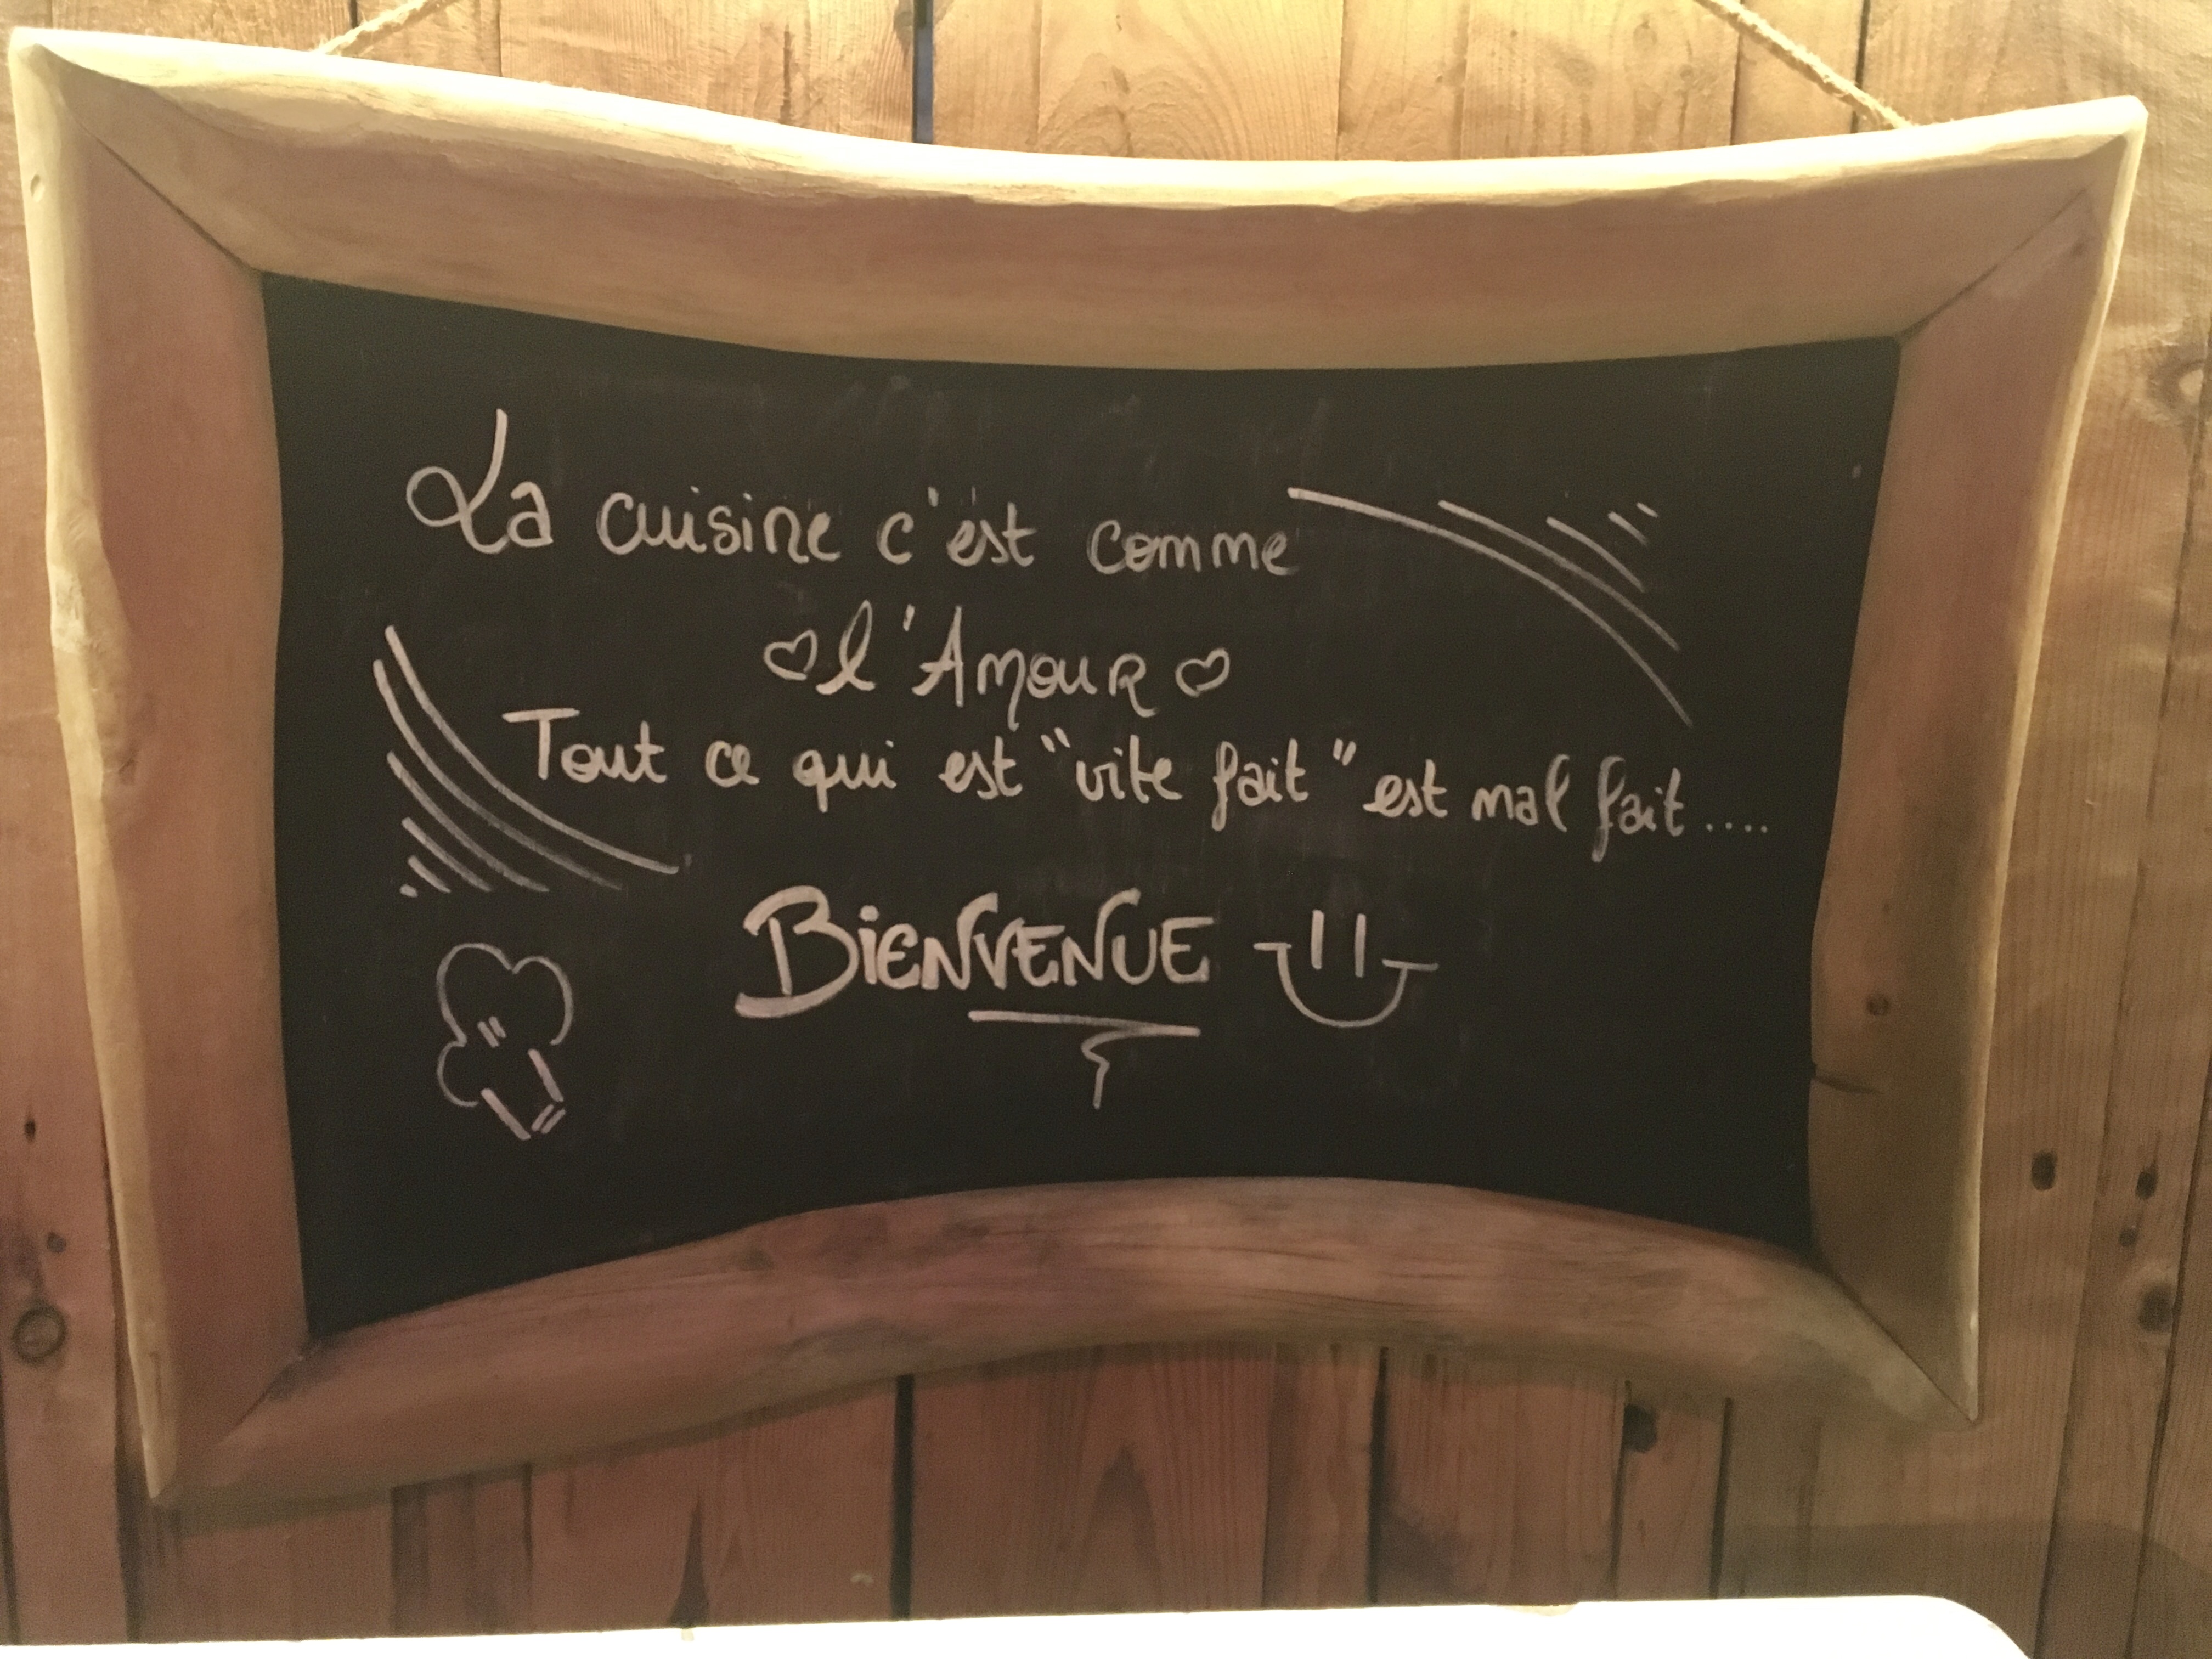 La cuisine c'est comme
l'Amour
Tout ce qui est "vite fait" est mal fait....
BIENVENUE